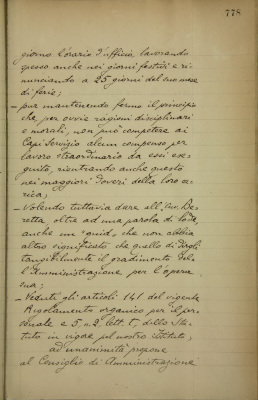 778
giorno l'orario d'ufficio lavorando
spesso anche nei giorni festivi e ri-
nunciando a 25 giorni del suo mese
di ferie;
- pur mantenendo fermo il principio
che, per ovvie ragioni disciplinari
e morali, non può competere ai
Capi Servizio alcun compenso per
lavoro straordinario da essi ese-
guito, rientrando anche questo
nei maggiori doveri della loro ca-
rica;
- Volendo tuttavia dare all'
retta, oltre ad una parola di lode,
anche un "quid", che non abbia
altro significato che quello di dargli
tangibilmente il gradimento del-
l'Amministrazione per l'opera
sua;
- Veduti gli articoli 141 del vigente
Regolamento organico per il per-
sonale e 5 n. 2, lett. , dello Sta-
tuto in vigore pel nostro Istituto,
ad unanimità propone
al Consiglio di Amministrazione